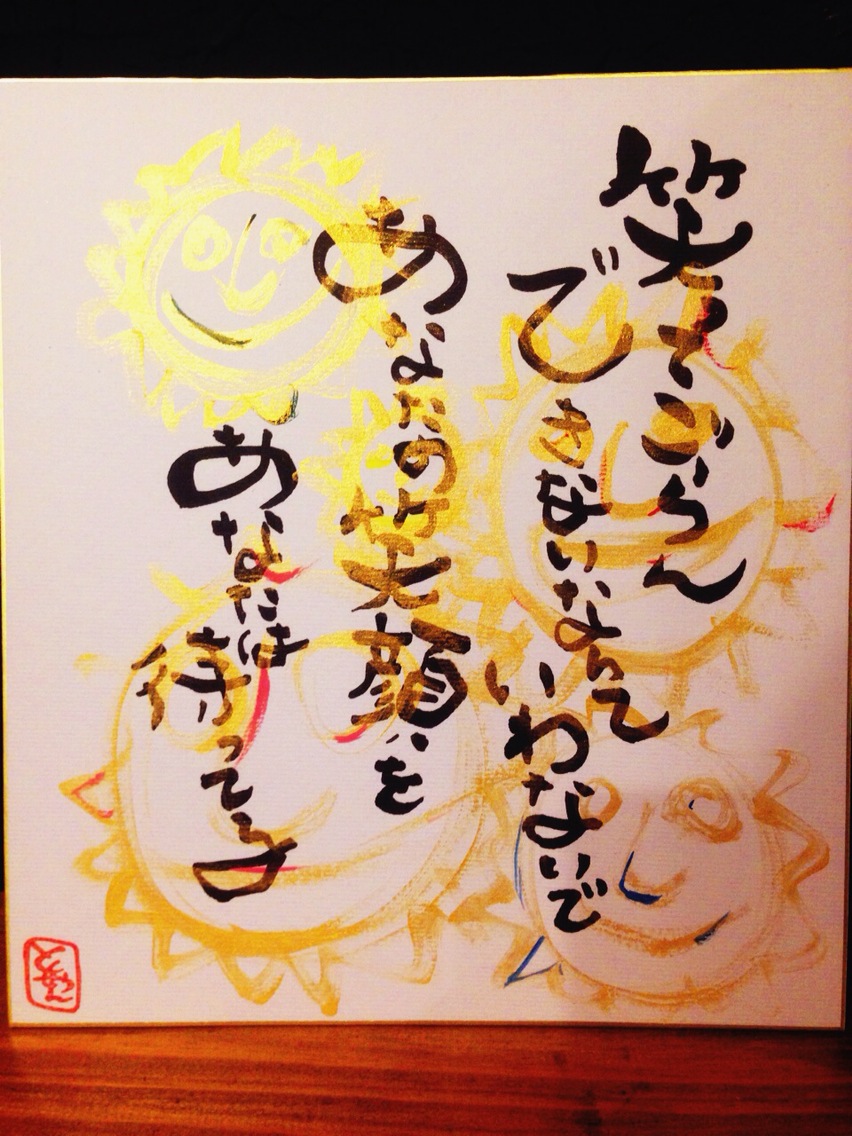 笑ってごらん
できないなんて
いわないで
あなたの笑顔を
あなたは待ってる